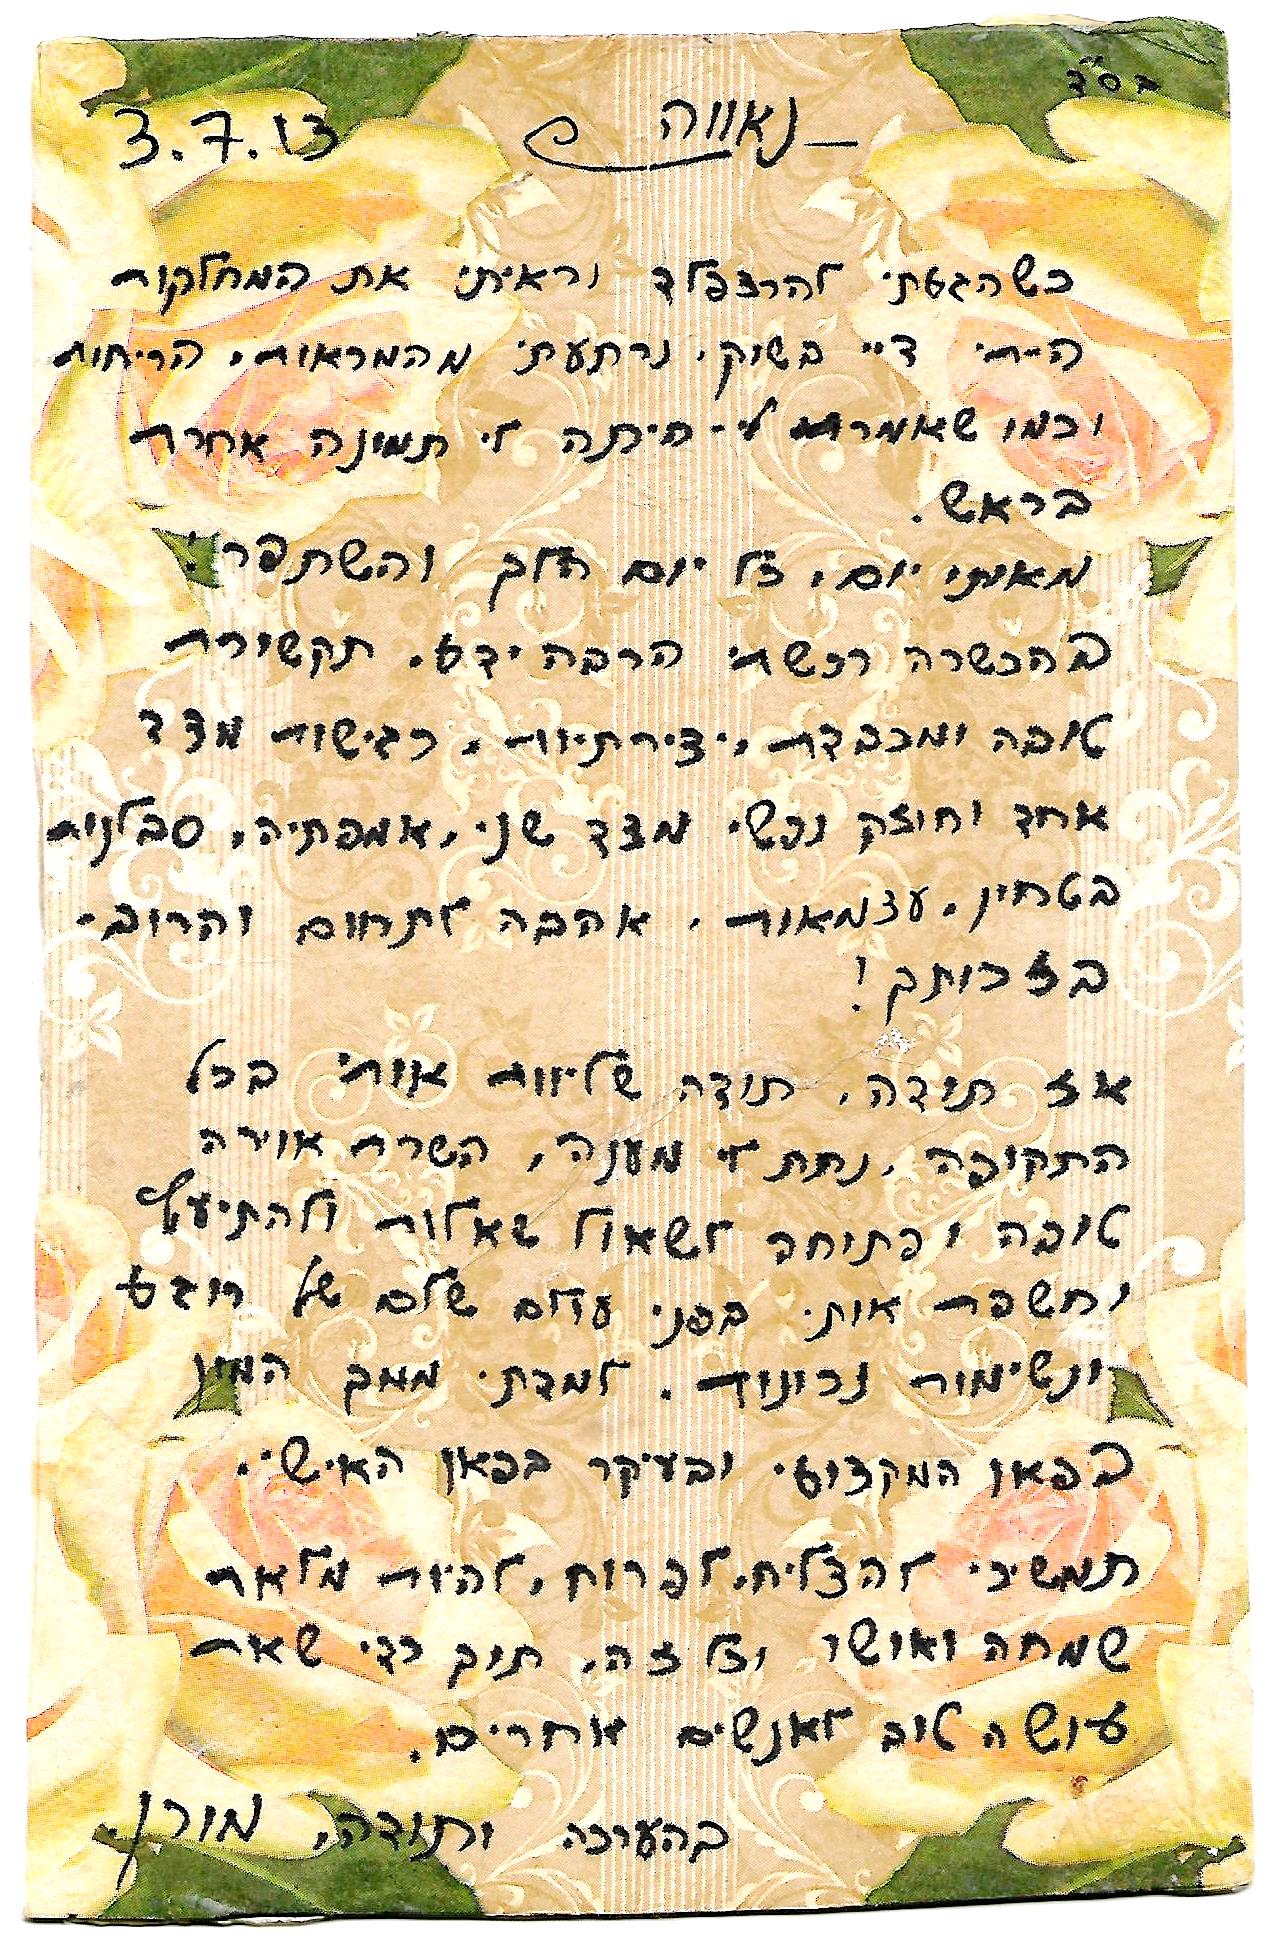 בס"ד
נאווה 3.7.13
כשהגעתי להרצפלד וראיתי את המחלקות
הייתי די בשוק, נרתעתי מהמראות, הריחות
וכמו שאמרת לי - היתה לי תמונה אחרת
בראש.
מאותו יום, כל יום הלך והשתפר:
בהכשרה רכשתי הרבה ידע, תקשורת
טובה ומכבדת, יצירתיות, רגישות מצד
אחד וחוזק נפשי מצד שני, אמפתיה, סבלנות
בטחון, עצמאות, אהבה לתחום והרוב -
בזכותך!
אז תודה, תודה שליוות אותי בכל
התקופה, נתת לי מענה, השרת אוירה
טובה ופתוחה לשאול שאלות ולהתיעץ
וחשפת אותי בפני עולם שלם של רוגע
ונשימות נכונות. למדתי ממך המון
בפאן המקצועי ובעיקר בפאן האישי.
תמשיכי להצליח, לפרוח, להיות מלאת
שמחה ואושר וכל זה, תוך כדי שאת
עושה טוב לאנשים אחרים.
בהערכה ותודה, מורן.